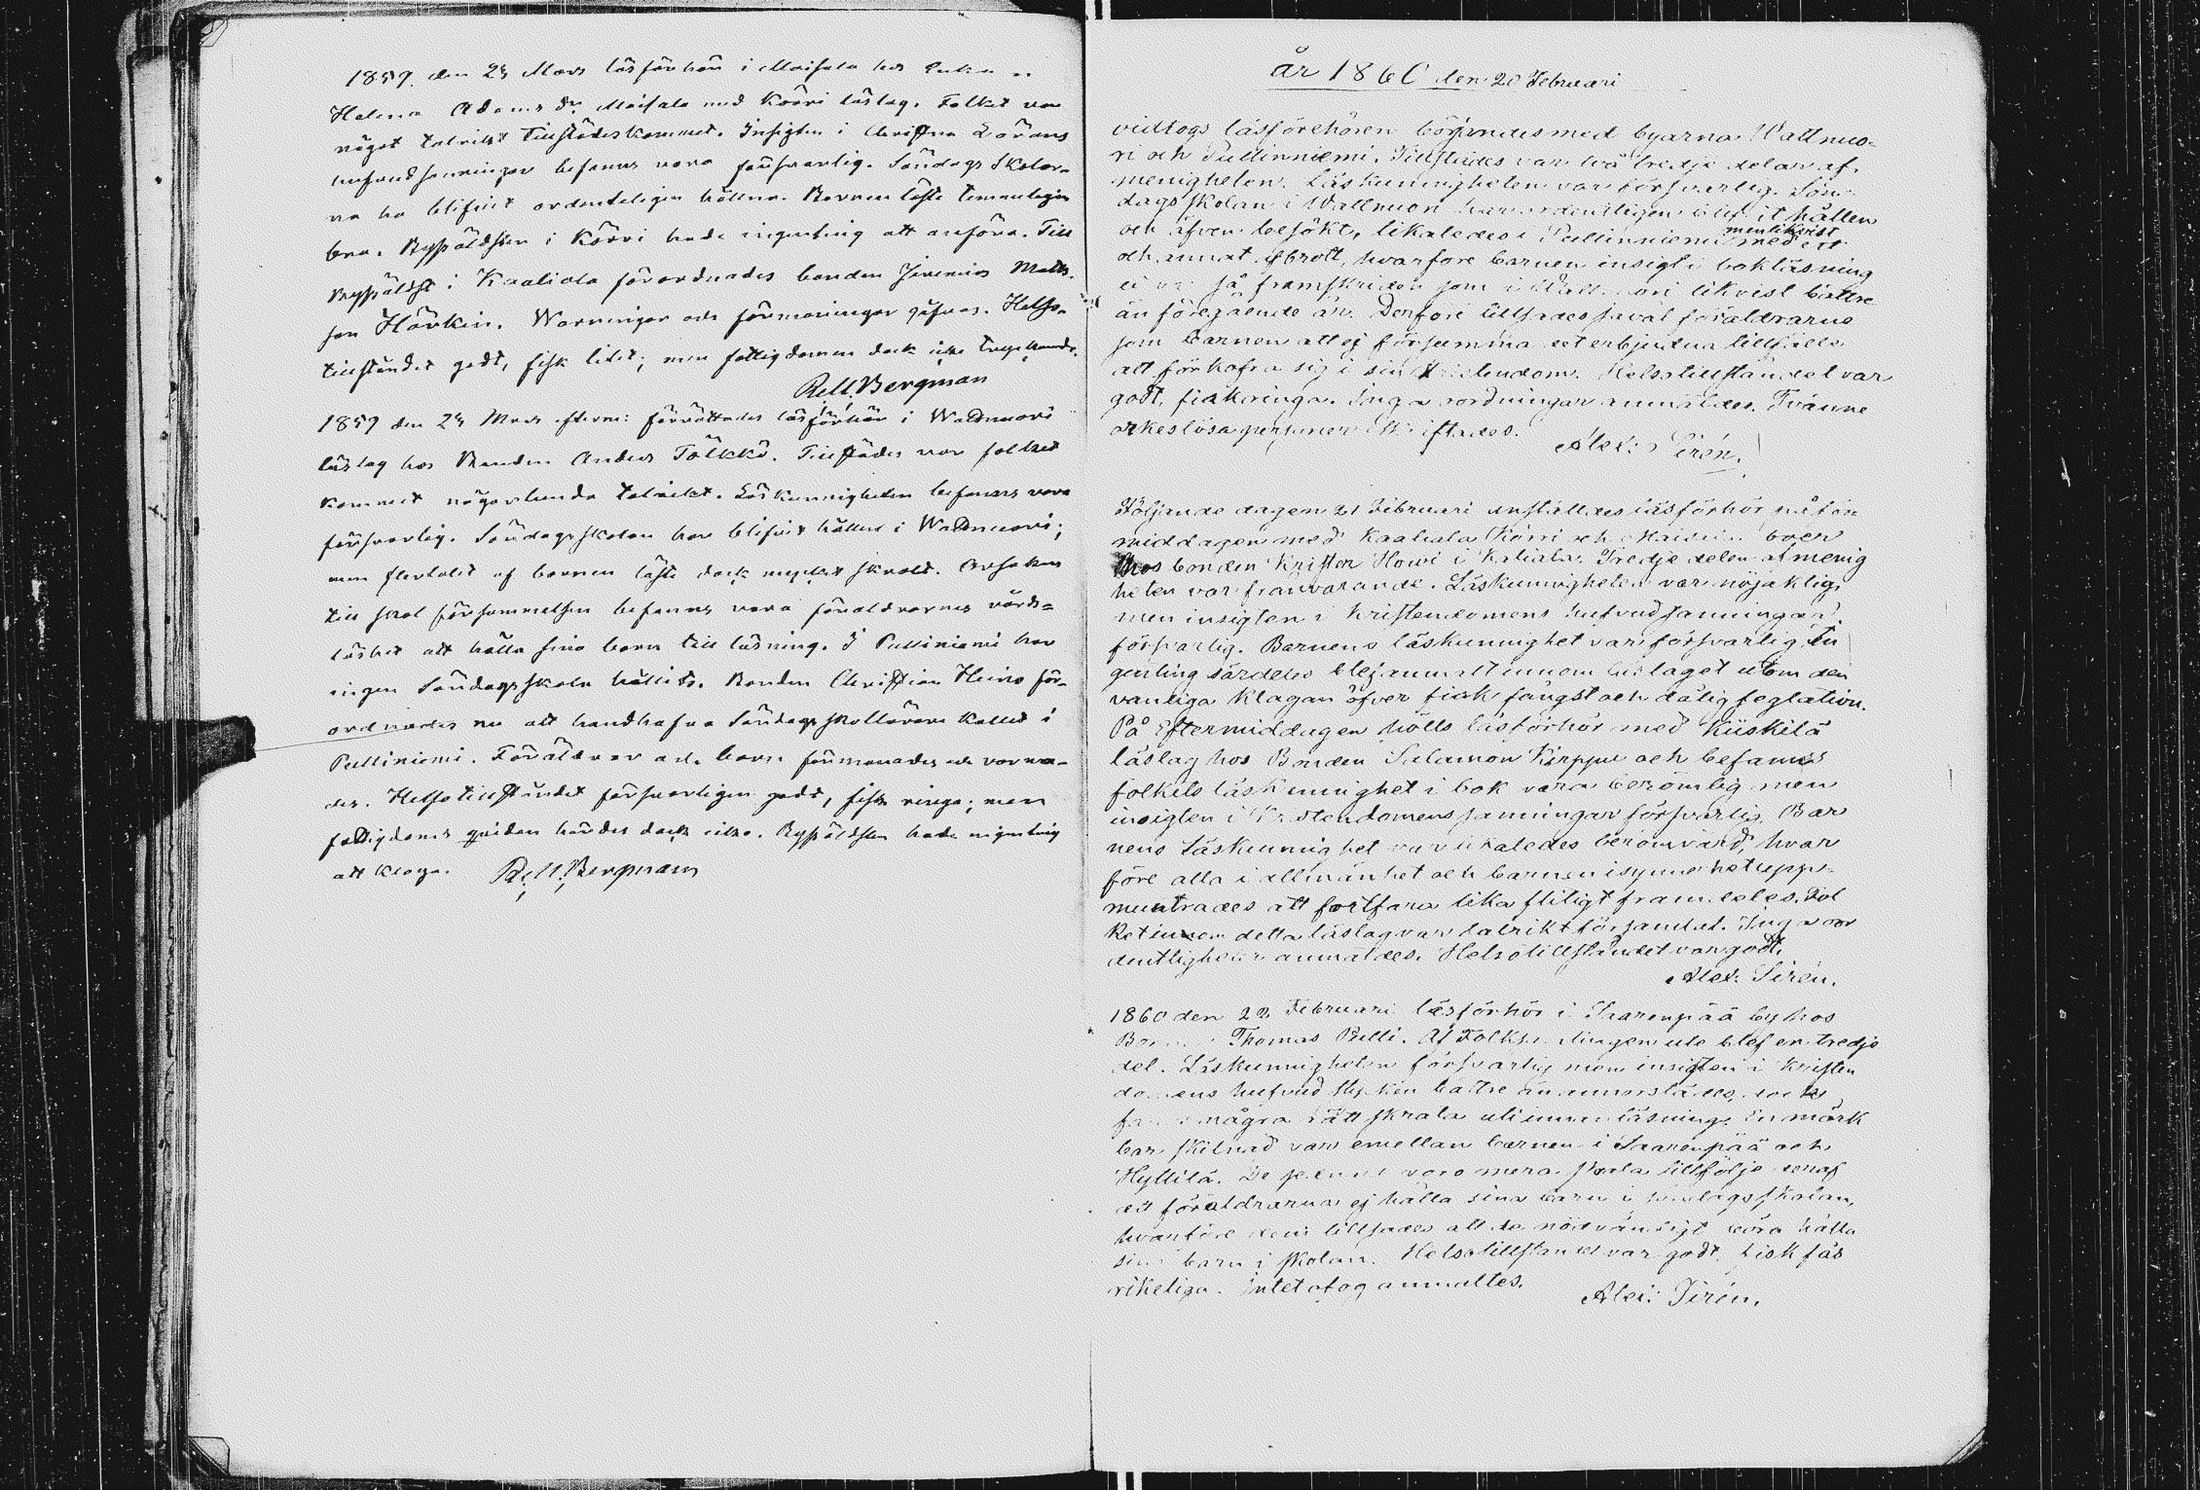 1859. den 24 Mars läsförhör i Maisala hos Enkan
Helena Adams dr Maisala med Körri läslag. Folket var
något talrikt tillstädeskommet. Insigten i Christna Lärans
hufvudsanningar befanns vara försvarlig. Söndags Skolor-
na ha blifvit ordenteligen hållna. Barnen läste temmeligen
bra. Byåldsten i Körri hade ingenting att anföra. Till
Byåldste i Kaaliala förordnades bonden Jeremias Matts-
son Harkin. Warningar och förmaningar gåfvos. Helso-
tillståndet godt, fisk litet; men fattigdomen dock icke tryckande.
R.M. Bergman
1859 den 24 Mars efterm: förrättades läsförhör i Wallmuori
läslag hos Bonden Anders Tölkkö. Tillstädes var folket
kommet någorlunda talrikt. Läskunnigheten befanns vara
försvarlig. Söndagsskolan har blifvit hållen i Wallmuori;
men flertalet af barnen läste dock mycket skralt. Orsaken
till skol försummelsen befanns vara föräldrarnes vårds-
löshet att hålla sina barn till läsning. I Pulliniemi har
ingen Söndagsskola hållits. Bonden Christian Heino för-
ordnades nu att handhafva Söndags skollärare kallet i
Pulliniemi. Föräldrar och barn förmanades och varna-
des. Helsotillståndet försvarligen godt, fisk ringa; men
fattigdoms qviden hördes dock icke. Byåldsten hade ingenting
att klaga. R.M. Bergman
år 1860 den 20 Februari
vidtogs läsförehören börjandes med byarna Wallmuo-
ri och Pullinniemi. Tillstädes var två tredje delar af
menigheten. Läskunnigheten var försvarlig. Sön-
dagsskolan i Wallmuori har ordentligen blifvit hållen
och äfven besökt, likaledes i Pullinniemi menlikvist med ett
och annat afbrott, hvarföre barnen insigt i bokläsning
ej var så framskriden som i Wallmuori likvist bättre
än föregående år. Derföre tillsades såväl föräldrarne
som barnen att ej försumma det erbjudna tillfälle
att förkofra sig i sin Kristendom. Helsotillståndet var
godt, fisk ringa. Inga oordningar anmäldes. Tvänne
orkeslösa personer skriftades.
Alex: Sirén.
Följande dagen 21 Februari anställdes läsförhör på för
middagen med Kaaliala Körri och Maisala boer
hos bonden Krister Howi i Kaliala. Tredje delen af menig
heten var frånvarande. Läskunnigheten var nöjaktlig,
men insigten i Kristendomens hufvudsanningar
försvarlig. Barnens läskunnighet var försvarlig. In
genting särdeles blef anmält innom läslaget utom den
vanliga klagan öfver fisk fångst och dålig feglation.
På Eftermiddagen hölls läsförhör med Kiiskilä
läslag hos Bonden Salamon Kirppu och befanns
folkets läskunnighet i bok vara berömlig men
insigten i Kristendomens sanningar försvarlig. Bar
nens Läskunnighet var likaledes berömvärd, hvar
före alla i allmänhet och barnen i synnerhet upp-
muntrades att fortfara lika flitigt framdeles. Fol
ket innom detta läslag var talrikt församlat. Inga oor
dentligheter anmäldes. Helsotillståndet var godt.
Alex: Sirén.
1860 den 22 Februari läsförhör i Saarenpää by hos
Bonden Thomas Pelli. Af Folksamlingen ute blef en tredje
del. Läskunnigheten försvarlig men insigten i Kristen
domens hufvud stycken bättre än annorstädes, dock
fanns några rätt skrala uti innanläsning. En märk
bar skilnad var emellan barnen i Saarenpää och
Hyttilä. De senare voro mera skrala till följe deraf
att föräldrarna ej hålla sina barn i söndagsskolan,
hvarföre dem tillsades att de nödvändigt böra hålla
sina barn i skolan. Helsotillståndet var godt. Fisk fås
rikeliga. Intet ofog anmältes.
Alex: Sirén.